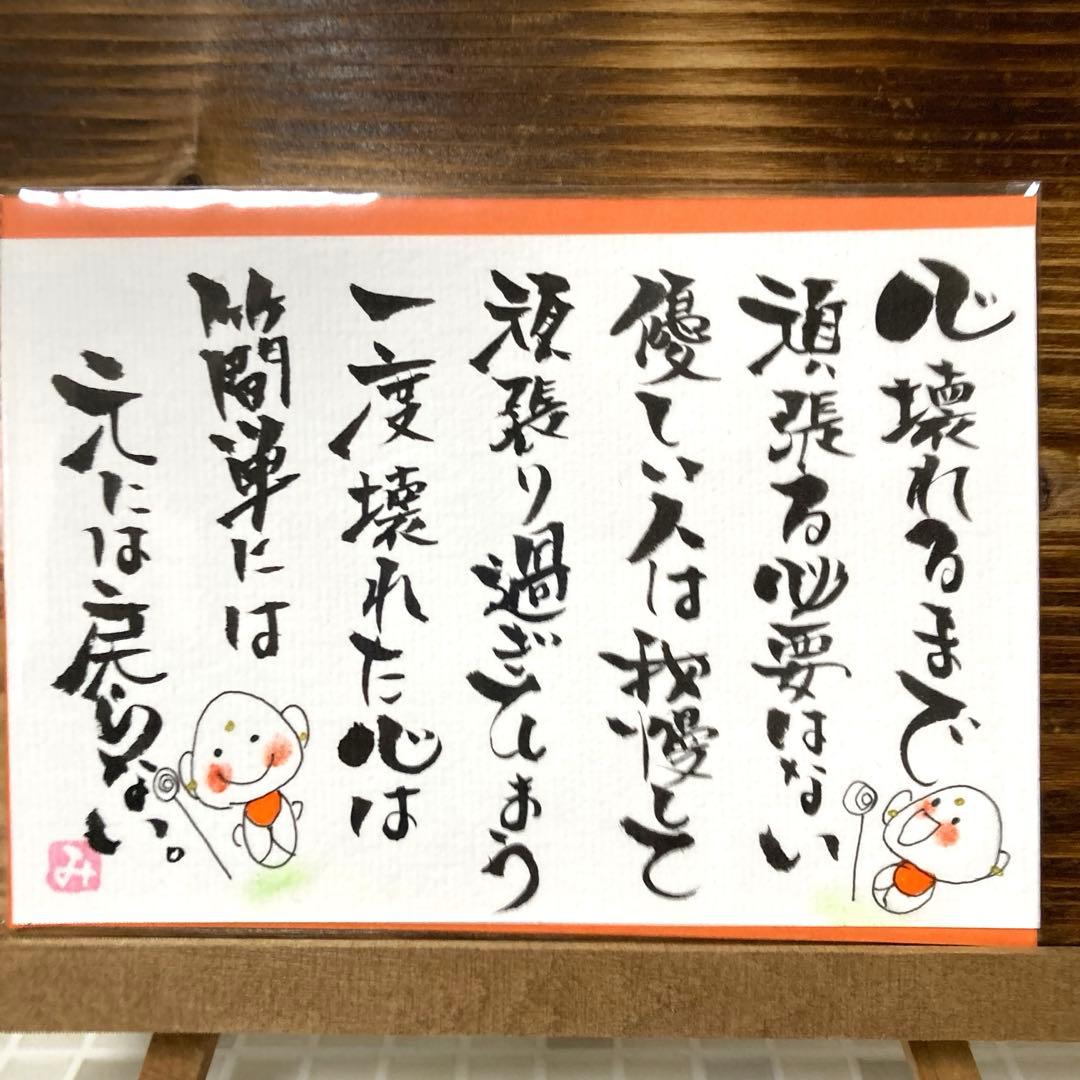 心壊れるまで
頑張る必要はない
優しい人は我慢して
頑張り過ぎてしまう
一度壊れた心は
簡単には
元には戻らない。
み